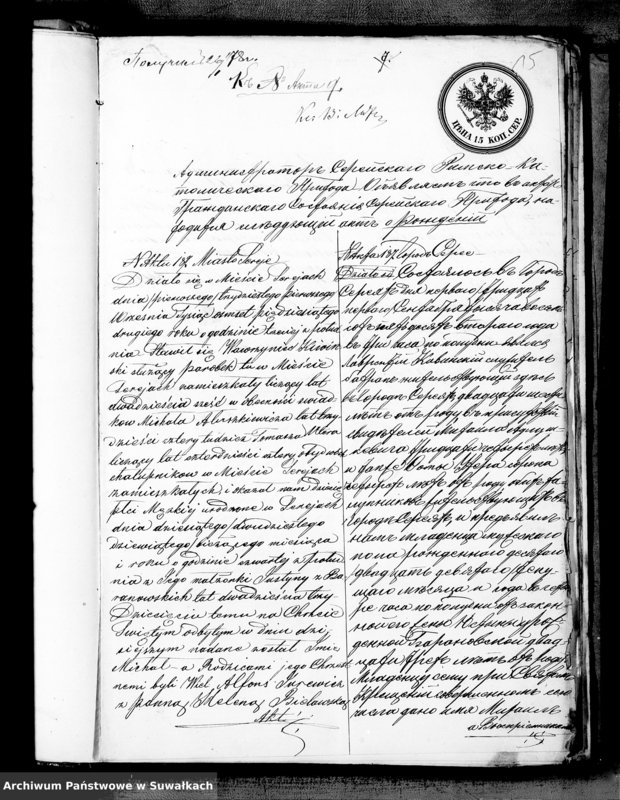 Къ № Акта 9
15
ЦѢНА 15 КОП. СЕР.
Администраторъ Серейскаго Римско-Ка-
толическаго Прихода Объявляетъ что въ актѣ
Гражданскаго Состоянія Серейскаго Прихода, на-
ходится слѣдующій актъ о рожденіи
N Aktu 137 Miasto Sereje
Działo się w Mieście Serejach
dnia /pierwszego/ trzydziestego pierwszego
Września tysiąc ośmset pięćdziesiątego
drugiego roku o godzinie trzeciej z połud
nia Stawił się Wawrzyniec
ski służący parobek tu w Mieście
Serejach zamieszkały liczący lat
dwadzieścia sześć w obecności świad
ków Michała Aluszkiewicza lat trzy
dzieści cztery tudzież Tomasza
liczący lat czterdzieści cztery obydwóch
chałupników w Mieście Serejach
zamieszkałych i okazał nam dziecię
płci Męzkiej urodzone w Serejach
dnia dziesiątego /dwudziestego
dziewiątego/ bieżącego miesiąca
i roku o godzinie czwartej z połud
nia z Jego małżonki Justyny z Ba
ranowskich lat dwadzieścia trzy
Dziecięciu temu na Chrzcie
Świętym odbytym w dniu dzi
siejszym nadane zostało Imie
Michał a Rodzicami jego Chrzest
nemi byli Wiel. Alfons
z Panną Heleną Bielawską
Akt
Состоялось въ Городѣ
Сереяхъ дня перваго /тридцать
перваго/ Сентября тысяча восемь
сотъ пятьдесятъ втораго года
въ три часа по полудни явился
Лаврентій служитель
въ городѣ Сереяхъ, двадцати шести
лѣтъ отъ роду въ присутствіи
свидѣтелей Михаила Алуш
кевича тридцати четырехъ лѣтъ
и также Ѳомы сорока
четырехъ лѣтъ отъ роду обихъ ха
лупниковъ жительствующихъ въ
городѣ Сереяхъ, и предъявилъ
намъ младенца мужескаго
пола рожденнаго десятаго
/двадцать девятаго/ теку
щаго мѣсяца и года въ четы
ре часа по полудни отъ закон
ной его жены Юстины рож
денной Барановской двад
цати трехъ лѣтъ отъ роду
Младенцу сему при Святомъ
Крещеніи совершенномъ сего
числа дано имя Михаилъ
а Воспріемниками
Archiwum Państwowe w Suwałkach